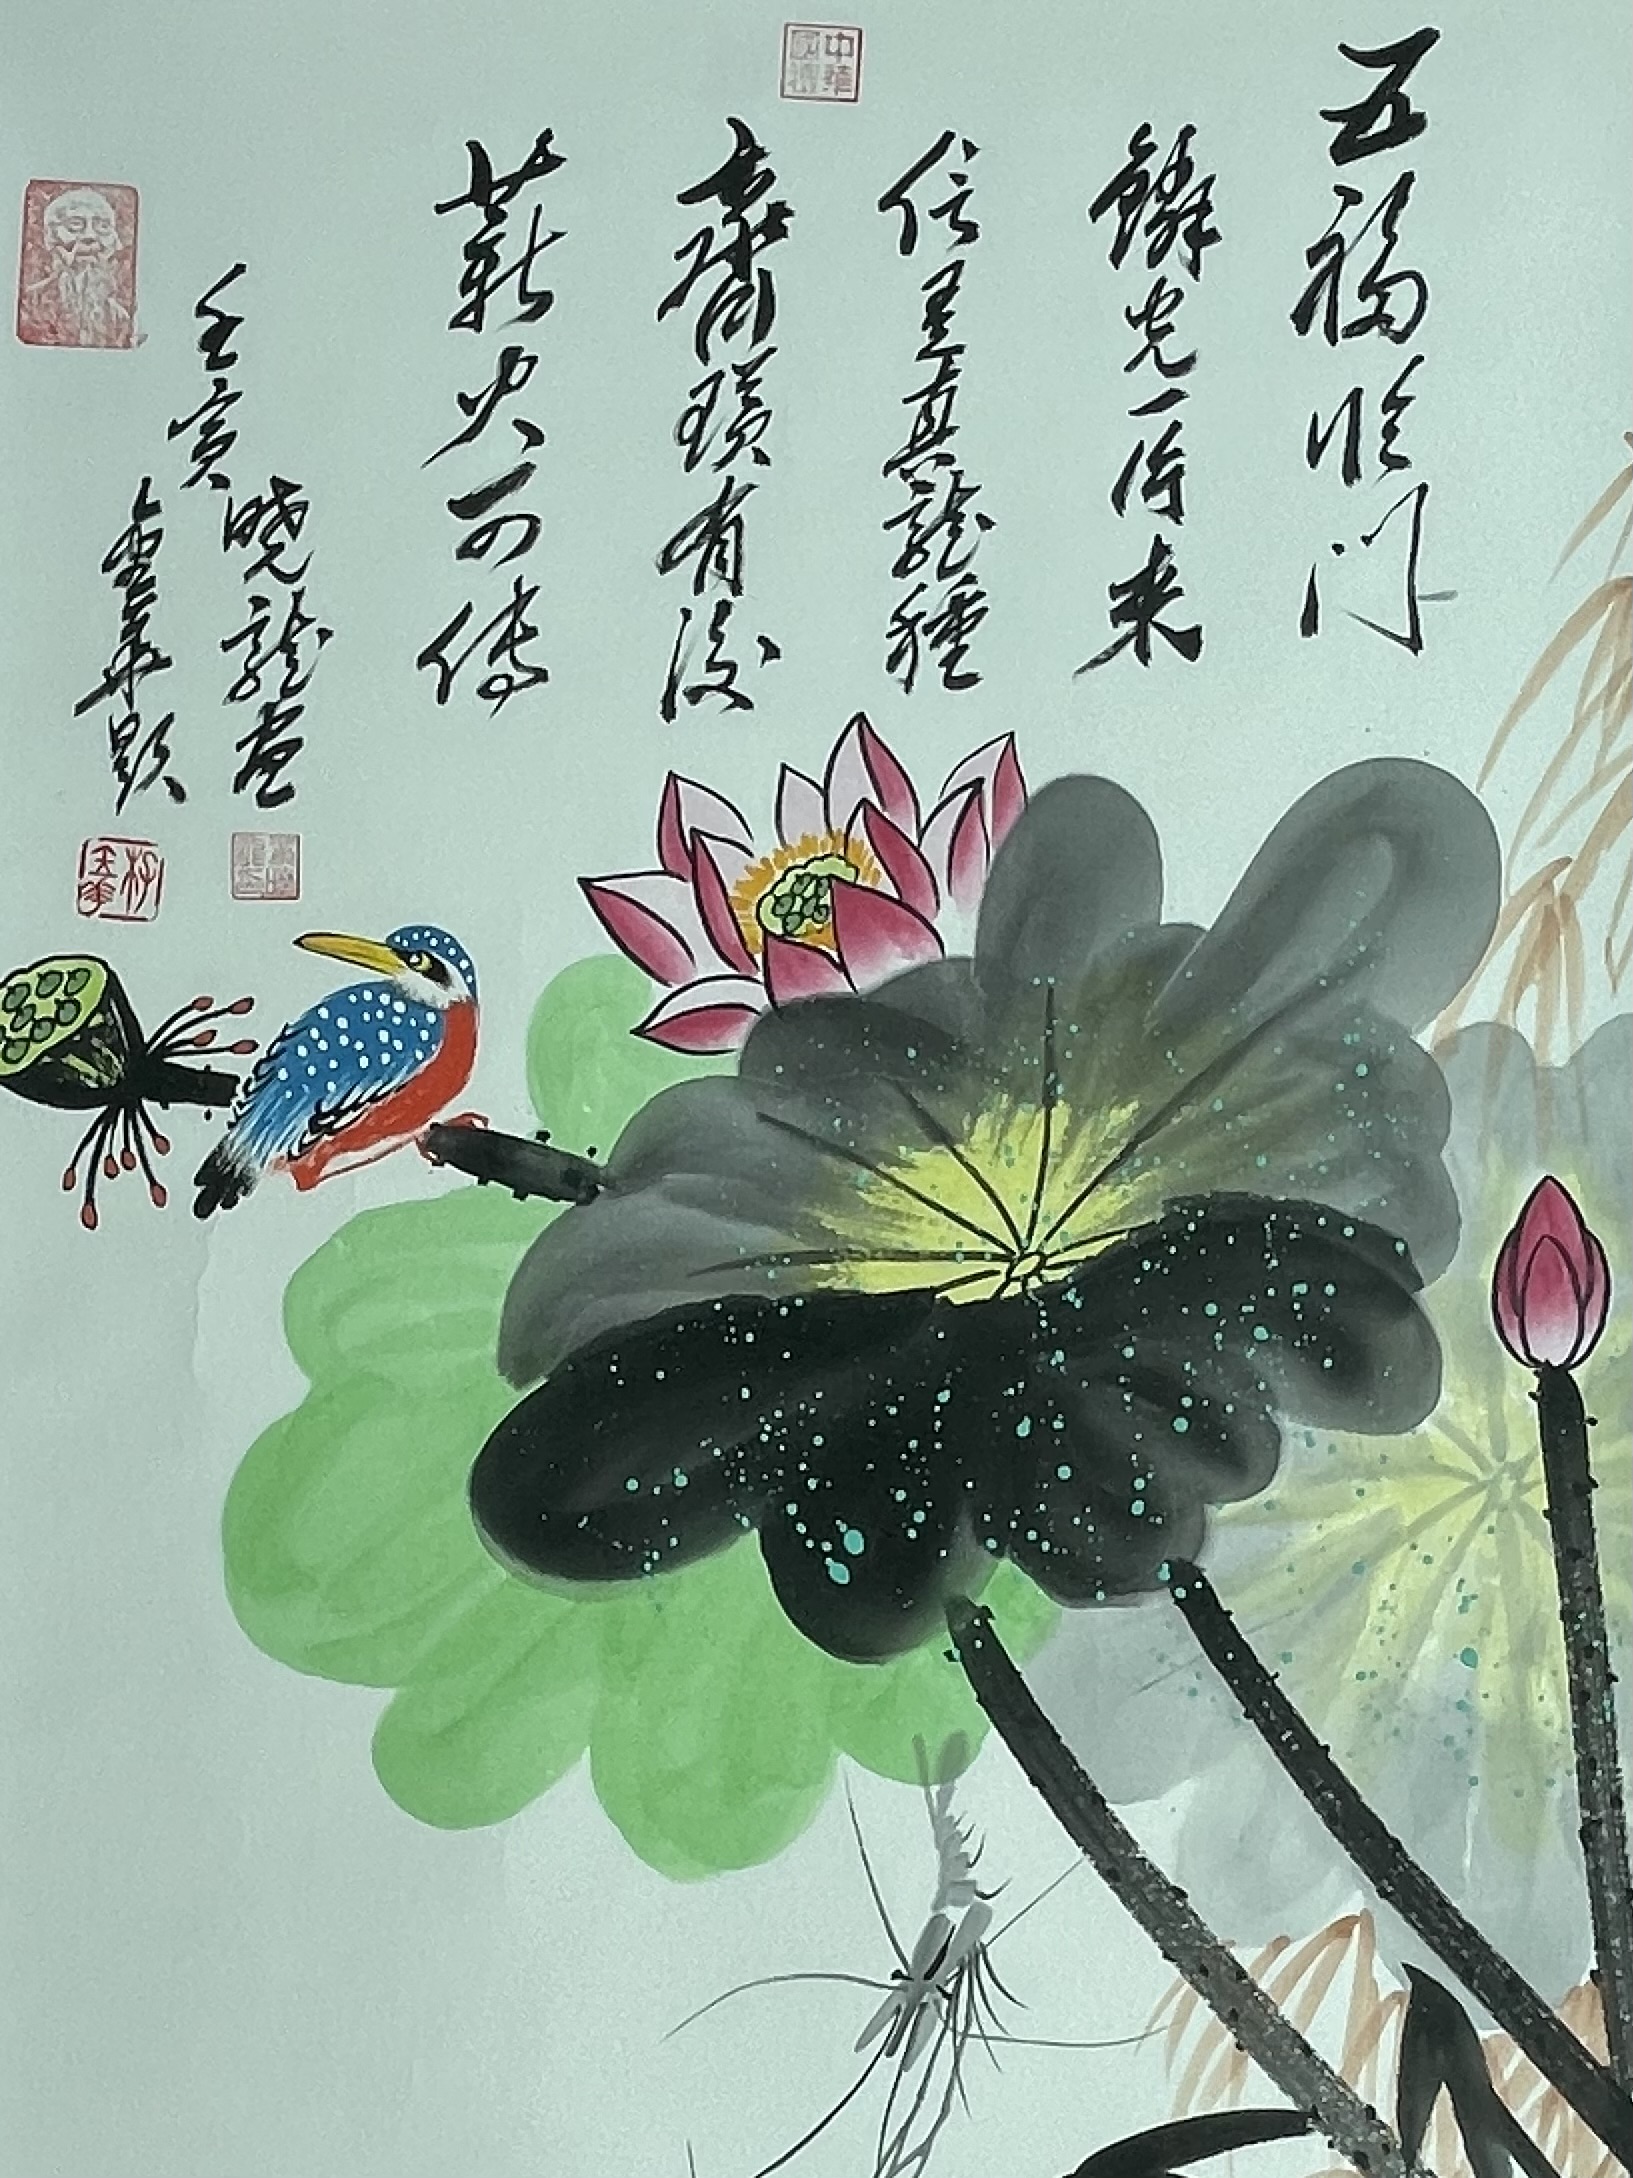 五福临门
鳞光一片来
信是真龍種
袁齊璜有後
薪火可傳
壬寅
曉龍畫
金華題
中華